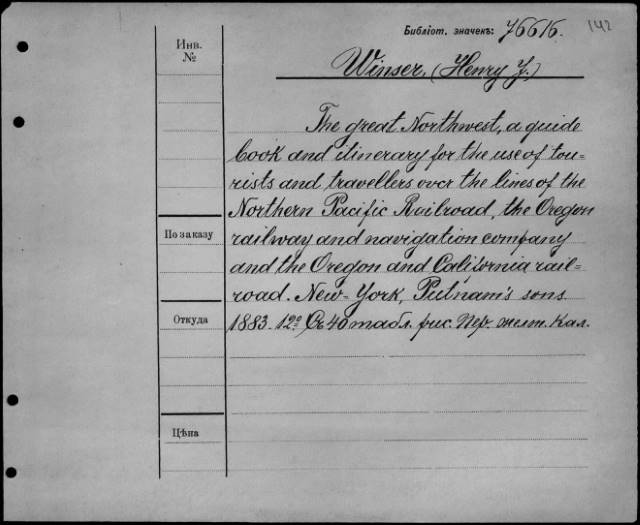 Библіот. значекъ: 76616. 142
Инв.
№
Winser, (Henry J.)
The great Northwest, a guide
book and itinerary for the use of tou-
rists and travellers over the lines of the
Northern Pacific Railroad, the Oregon
railway and navigation company
По заказу
and the Oregon and California rail-
road. New-York, Putnam's sons
Откуда
1883. 12º. Съ 40 табл. рис. Пер. желт. кал.
Цѣна